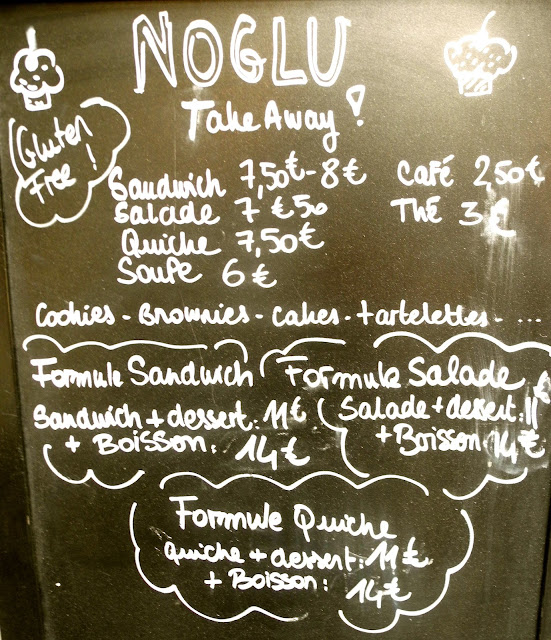 NOGLU
Take Away !
Gluten
Free !
Sandwich 7,50€-8€
Salade 7€50
Quiche 7,50€
Soupe 6€
Café 2,50€
Thé 3€
Cookies - Brownies - Cakes - tartelettes - ...
Formule Sandwich
Sandwich + dessert : 11€
+ Boisson : 14€
Formule Salade
Salade + dessert : 11€
+ Boisson 14€
Formule Quiche
Quiche + dessert : 11€
+ Boisson : 14€